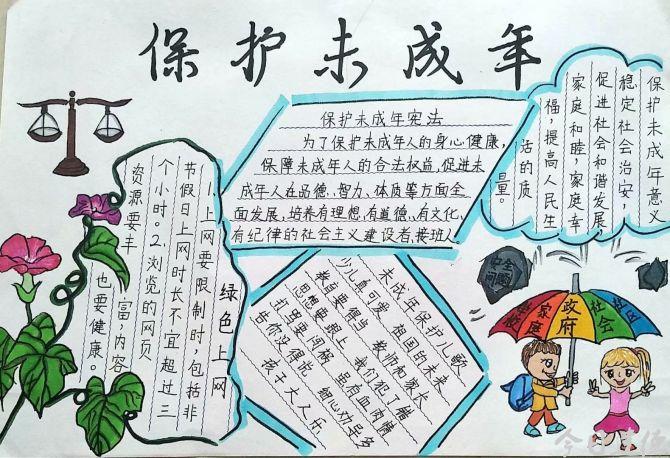 保护未成年
保护未成年宪法
为了保护未成年人的身心健康，
保障未成年人的合法权益，促进未
成年人在品德、智力、体质等方面全
面发展，培养有理想、有道德、有文化、
有纪律的社会主义建设者、接班人。
保护未成年意义
稳定社会治安，
促进社会和谐发展
家庭和睦，家庭幸
福，提高人民生
活的质
量。
绿色上网
1.上网要限制时，包括非
节假日上网时长不宜超过三
个小时。2.浏览的网页
资源要丰
富，内容
也要健康。
未成年保护儿歌
少儿真可爱 祖国的未来
教育要得当 教师和家长
思想要跟上 我们犯了错
打骂要问格 虽有血肉情
告你没得说 细心劝导多
孩子大人乐
安全
问题
学校
家庭
政府
社会